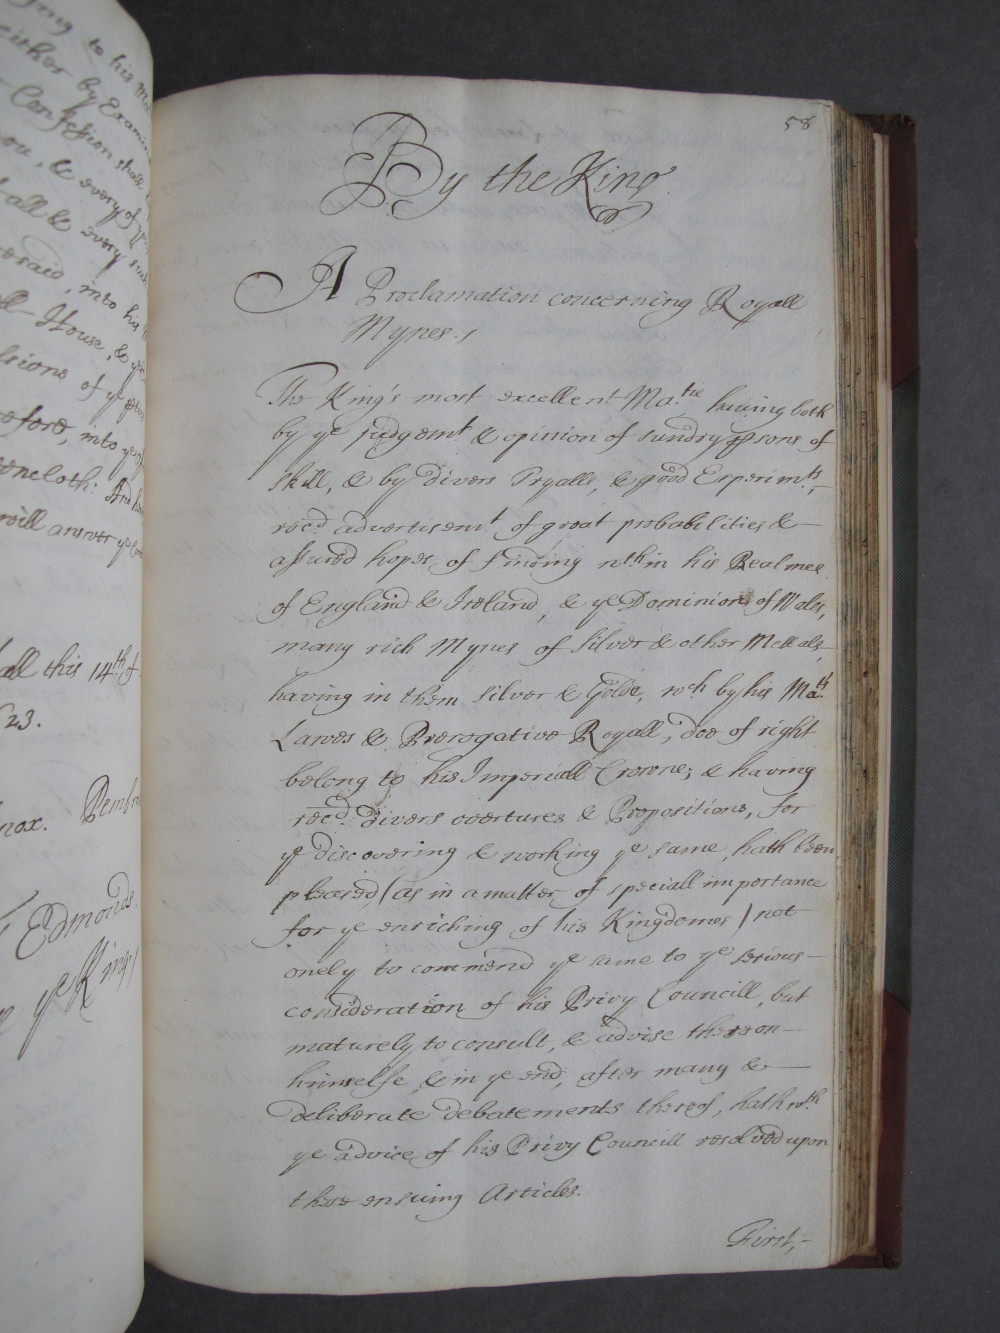 ying to his Ma
either by Examin
Confession, shall
ou, & every of ye
all & every such
resaid, into his
ll-House, & ye
ssions of ye
efore, into ye
oncloth: And
will answer ye
all this 14th of
23.
nox. Pembro
Edmonds.
ye King/
58
By the King
A Proclamation concerning Royall
Mynes./
The King's most excellent Ma.tie having both
by ye judgemt & opinion of sundry psons of
skill, & by divers Tryalls, & good Experimts,-
recd advertisemt of great probabilities & -
assured hopes of finding wthin his Realmes
of England & Ireland, & ye Dominion of Wales,
many rich Mynes of Silver & other Mettals,-
having in them Silver & Golde, wch by his Ma.ts
Lawes & Prerogative Royall, doe of right
belong to his Imperiall Crowne; & having
recd divers overtures & Propositions, for
ye discovering & working ye same, hath been,
pleased (as in a matter of speciall importance
for ye enriching of his Kingdomes) not
onely to commend ye same to ye serious -
consideration of his Privy Councill, but
maturely to consult, & advise thereon -
himselfe, & in ye end, after many & -
deliberate debatements thereof, hath wth
ye advice of his Privy Councill resolved upon
these ensuing Articles.
First,-